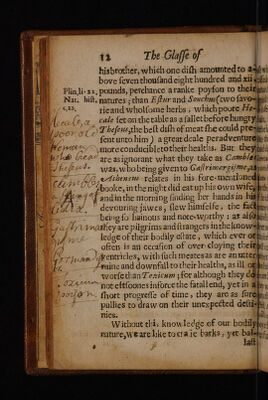 12 The Glasse of
his brother, which one dish amounted to a-
bove seven thousand eight hundred and xii.
Plin. li. 22, pounds, perchance a ranke poyson to their
Nat. hist. natures; than Estur and Sonchus (two favo-
c. 22. rie and wholsome herbs, which poore He-
cale set on the table as a sallet before hungry
Theseus, the best dish of meat she could pre-
sent unto him) a great deale peradventure
more conducible to their healths. But they
are as ignorant what they take as Cambles
was, who being given to Gastrimargisme, as
Athenæus relates in his fore-named
booke, in the night did eat up his own wife,
and in the morning finding her hands in his
devouring jawes, slew himselfe, the fact
being so hainous and note-worthy: as also
they are pilgrims and strangers in the know-
ledge of their bodily estate, which ever or
often is an occasion of over cloying their
ventricles, with such meates as are an utter
ruine and downfall to their healths, as ill or
worse than Toxicum; for although they do
not eftsoones inforce the fatall end, yet in a
short progresse of time, they are as sure
pullies to draw on their unexpected desti-
nies.
Without this knowledge of our bodily
nature, we are like to crazie barks, yet bal-
last
Hecale, a
poor old
woman
Theseus
Cambles